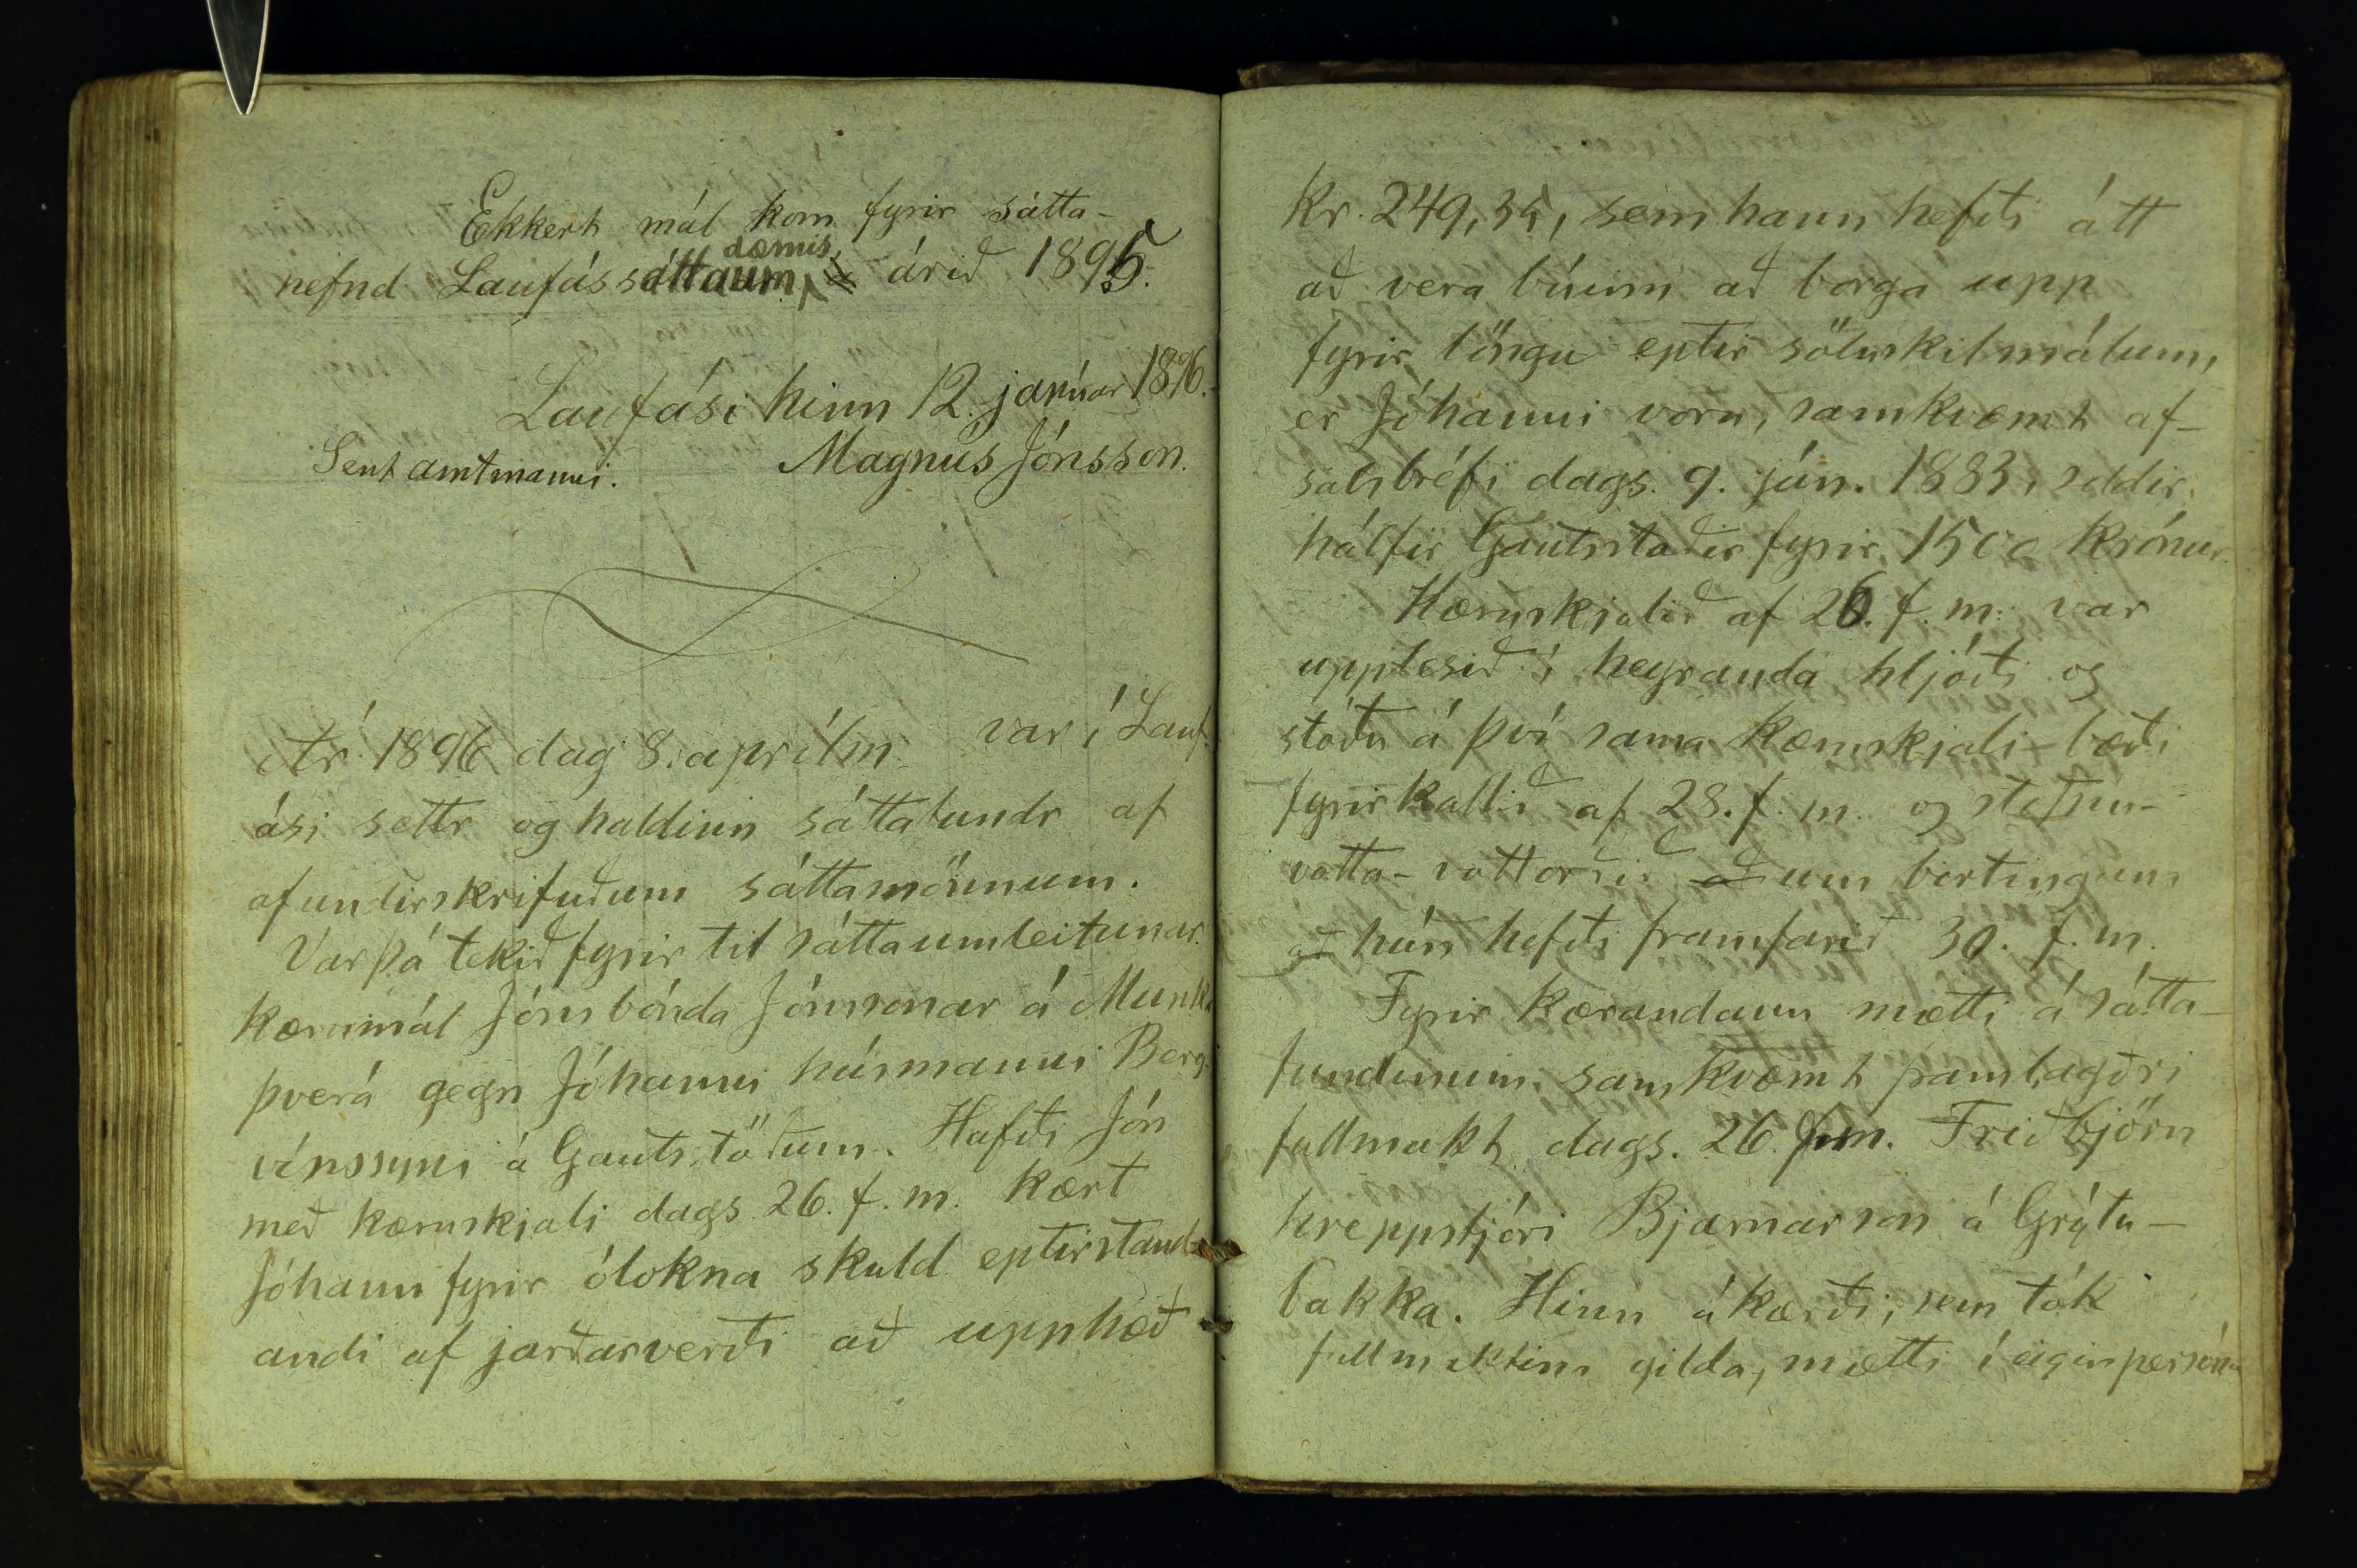 Ekkert mál kom fyrir sátta-
nefnd Laufássáttaumdæmis, árið 1895.
Laufási hinn 12. janúar 1896.
Magnús Jónsson.
Sent amtmanni.
Ár 1896 dag 8. aprílm. var í Lauf-
ási settr og haldinn sáttafundr af
af undirskrifuðum sáttamönnum.
Var þá tekið fyrir til sáttaumleitunar
kærumál Jóns bónda Jónssonar á Munka
þverá gegn Jóhanni húsmanni Berg-
vínssyni á Gautstöðum. Hafði Jón
með kæruskjali dags. 26. f. m. kært
Jóhann fyrir ólokna skuld eptirstand-
andi af jarðarverði að upphæð
Kr. 249,35, sem hann hefði átt
að vera búinn að borga upp
fyrir löngu eptir söluskilmálum,
er Jóhanni voru, samkvæmt af-
salsbréfi dags. 9. jún. 1883, seldir
hálfir Gautstaðir fyrir 1500 Krónur.
Kæruskjalið af 26. f. m. var
upplesið í heyranda hljóði og
stóðu á því sama kæruskjali bæði
fyrirkallið af 28. f. m. og stefnu-
votta-vottorðið að um birtingum
að hún hefði framfarið 30. f. m.
Fyrir kærandann mætti á sátta-
fundinum samkvæmt framlagðri
fullmakt dags. 26. f. m. Friðbjörn
hreppstjóri Bjarnarson á Grýtu-
bakka. Hinn ákærði, sem tók
fullmaktina gilda, mætti í eigin persónu